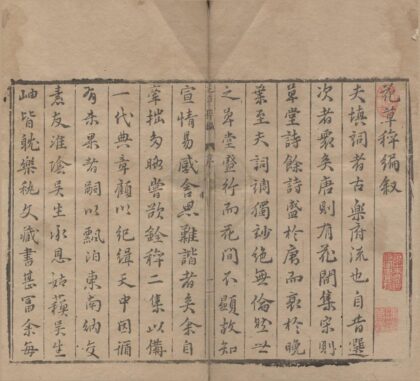 花草稡編叙
夫填詞者古樂府流也自昔選
次者衆矣唐則有花間集宋則
草堂詩餘詩盛於唐而衰於晚
葉至夫詞調獨玅絶無倫然世
之草堂盛行而花間不顯故知
宣情易感含思難諧者矣余自
牽拙多暇嘗欲銓稡二集以備
一代典章顧以紀緝天中因循
有未果者嗣以飄泊東南納交
素友淮陰吳生承恩姑蘇吳生
岫皆躭樂秇文藏書甚富余每